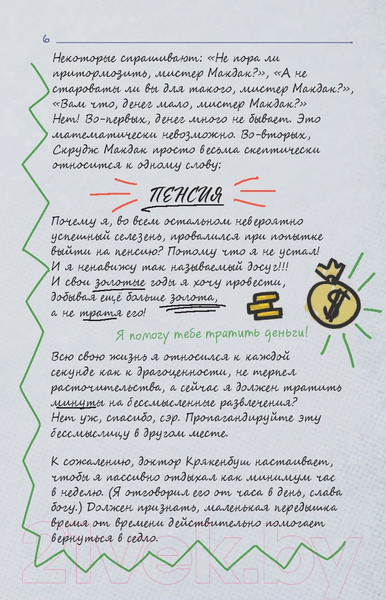 6
Некоторые спрашивают: «Не пора ли
притормозить, мистер Макдак?», «А не
староваты ли вы для такого, мистер Макдак?»,
«Вам что, денег мало, мистер Макдак?»
Нет! Во-первых, денег много не бывает. Это
математически невозможно. Во-вторых,
Скрудж Макдак просто весьма скептически
относится к одному слову:
ПЕНСИЯ
Почему я, во всём остальном невероятно
успешный селезень, провалился при попытке
выйти на пенсию? Потому что я не устал!
И я ненавижу так называемый досуг!!!
И свои золотые годы я хочу провести,
добывая ещё больше золота,
а не тратя его!
$
Я помогу тебе тратить деньги!
Всю свою жизнь я относился к каждой
секунде как к драгоценности, не терпел
расточительства, а сейчас я должен тратить
минуты на бессмысленные развлечения?
Нет уж, спасибо, сэр. Пропагандируйте эту
бессмыслицу в другом месте.
К сожалению, доктор Крякенбуш настаивает,
чтобы я пассивно отдыхал как минимум час
в неделю. (Я отговорил его от часа в день, слава
богу.) Должен признать, маленькая передышка
время от времени действительно помогает
вернуться в седло.
21vek.by